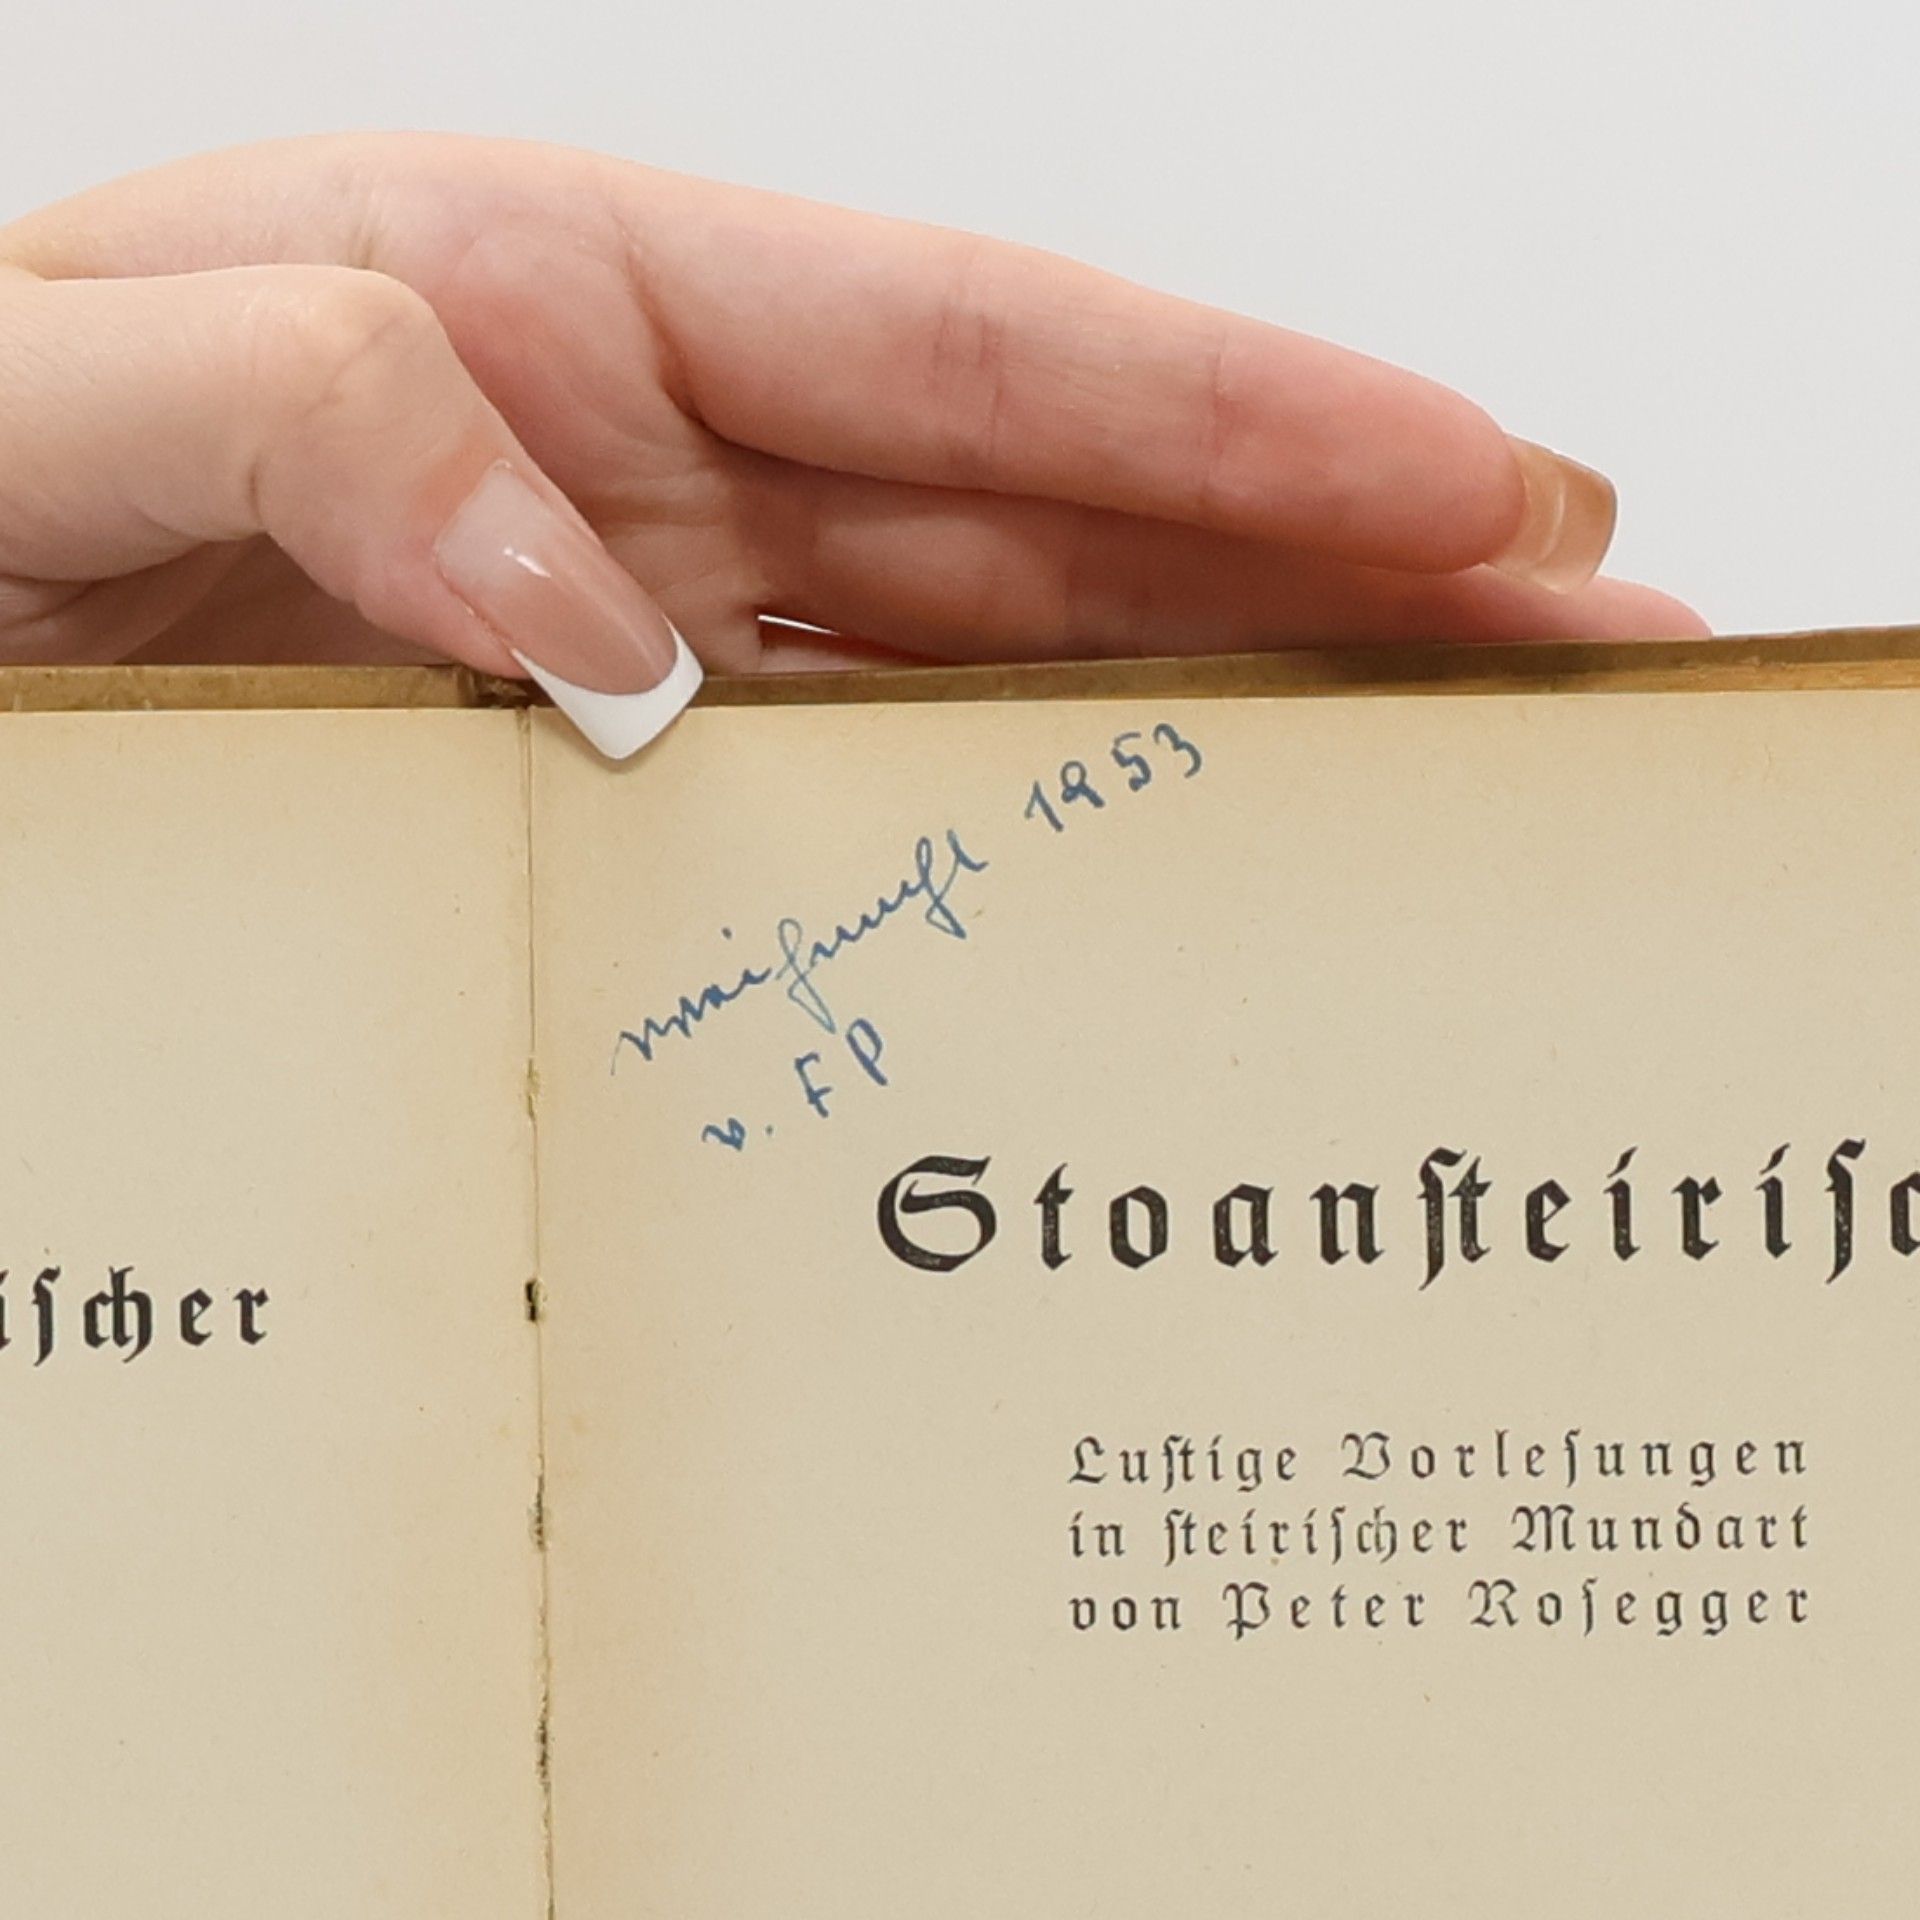 Weihnacht 1953
v. F P
Stoanſteiriſc
iſcher
Luſtige Vorleſungen
in ſteiriſcher Mundart
von Peter Roſegger